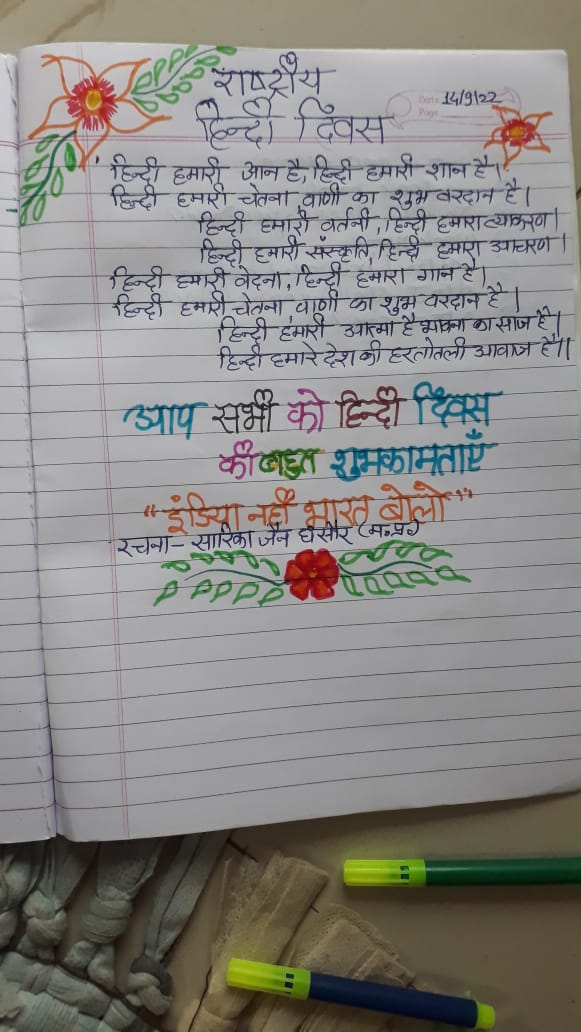 राष्ट्रीय
Date 14/9/22
Page
हिन्दी दिवस
हिन्दी हमारी आन है, हिन्दी हमारी शान है।
हिन्दी हमारी चेतना वाणी का शुभ वरदान है।
हिन्दी हमारी वर्तनी, हिन्दी हमारा व्याकरण।
हिन्दी हमारी संस्कृति, हिन्दी हमारा आचरण।
हिन्दी हमारी वेदना, हिन्दी हमारा गान है।
हिन्दी हमारी चेतना, वाणी का शुभ वरदान है।
हिन्दी हमारी आत्मा है भावना का साज है।
हिन्दी हमारे देश की हर तोतली आवाज है।।
आप सभी को हिन्दी दिवस
की बहुत शुभकामताएँ
"इंडिया नहीं भारत बोलो"
रचना - सारिका जैन (म.प्र.)